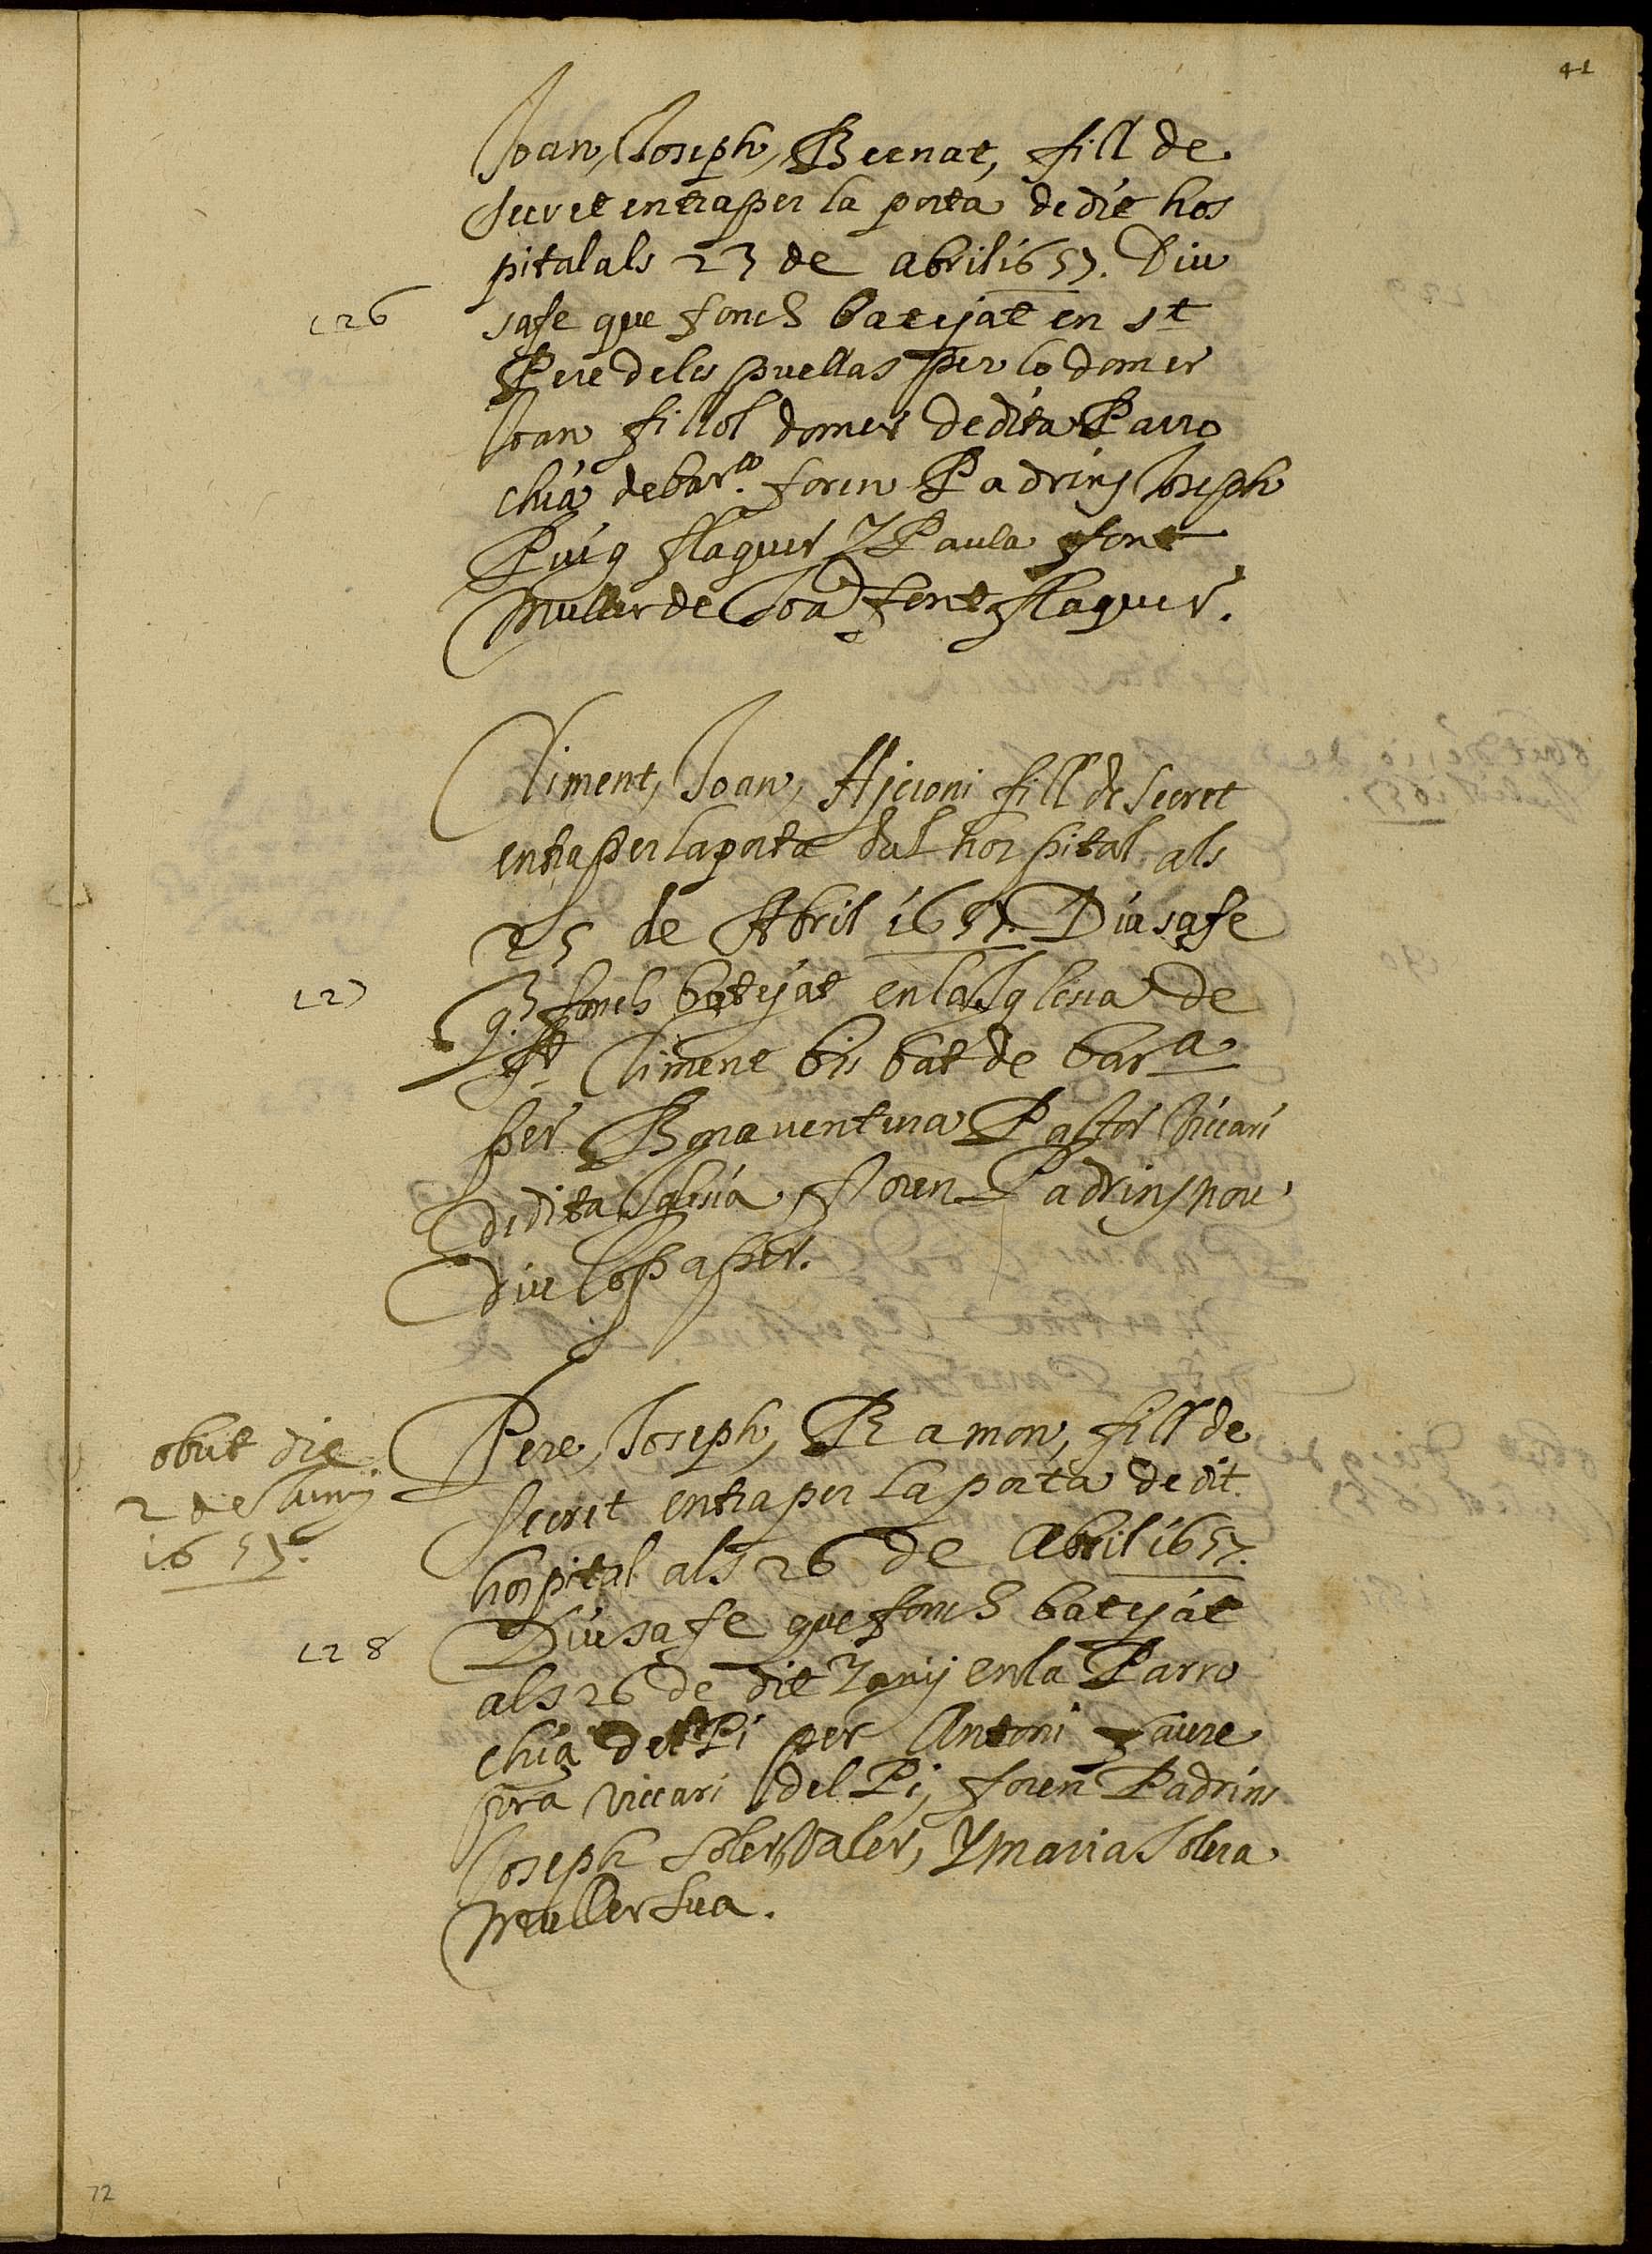 41
Joan, Joseph, Bernat, fill de
secret entra per la porta de dit hos
pital als 23 de abril 1657. Diu
sa fe que fonch batejat en st
126
Pere de les puellas per lo domer
Joan fillol domer de dita Parro
chia de bar.ª foren Padrins Joseph
Puig flaquer Y Paula font
muller de Joã font flaquer.
Climent, Joan, Hjeroni fill de secret
entra per la porta del hospital als
25 de Abril 1657. Diu sa fe
127
q̃ fonch batejat en la Iglesia de
St Climent bisbat de barª
per Bonaventura Pastor Viccari
de dita Iglesia foren Padrins nou
diu lo paper.
Pere, Joseph, Ramon, fill de
secret entra per la porta de dit
hospital als 26 de Abril 1657.
obiit die
2 de Juny
1657.
Diu sa fe que fonch batejat
128
als 26 de dit Y any en la Parro
chia del Pi per Antoni Faure
pra viccari del Pi, foren Padrins
Joseph Soler, Y Maria Solera
muller sua.
72